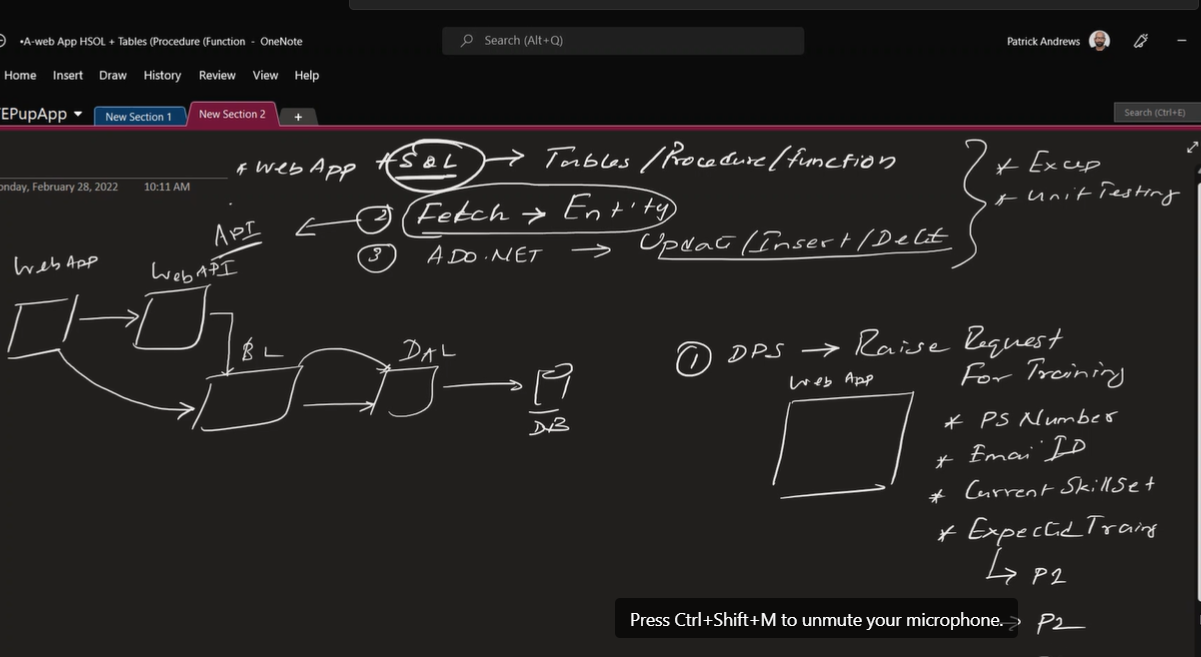 •A-web App HSOL + Tables (Procedure (Function - OneNote
Search (Alt+Q)
Patrick Andrews
Home Insert Draw History Review View Help
EPupApp
New Section 1
New Section 2
+
Search (Ctrl+E)
onday, February 28, 2022 10:11 AM
* Web App * SQL → Tables / Procedure / function
* Excep
* Unit Testing
② Fetch → Entity
API
③ ADO.NET → Updat / Insert / Delet
Web APP
Web API
BL
DAL
DB
① DPS → Raise Request
For Training
Web App
* PS Number
* Email ID
* Current SkillSet
* Expected Traing
P2
P2
Press Ctrl+Shift+M to unmute your microphone.